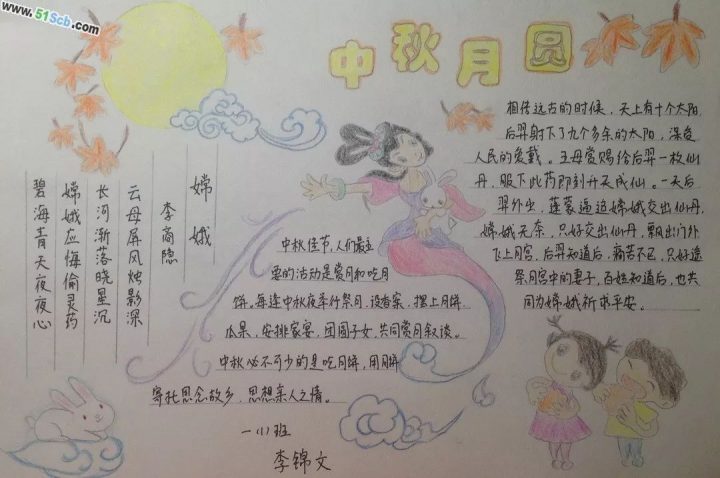 www.51Scb.com
中秋月圆
相传远古的时候，天上有十个太阳，
后羿射下了九个多余的太阳，深受
人民的爱戴。王母赏赐给后羿一枚仙
丹，服下此药即刻升天成仙。一天后
羿外出，蓬蒙逼迫嫦娥交出仙丹，
嫦娥无奈，只好交出仙丹，飘出门外
飞上月宫，后羿知道后，痛苦不已，只好遥
祭月宫中的妻子，百姓知道后，也共
同为嫦娥祈求平安。
嫦娥
李商隐
云母屏风烛影深
长河渐落晓星沉
嫦娥应悔偷灵药
碧海青天夜夜心
中秋佳节，人们最主
要的活动是赏月和吃月
饼。每逢中秋夜举行祭月，设香案，摆上月饼
瓜果，安排家宴，团圆子女，共同赏月叙谈。
中秋必不可少的是吃月饼，用月饼
寄托思念故乡，思想亲人之情。
一（1）班
李锦文